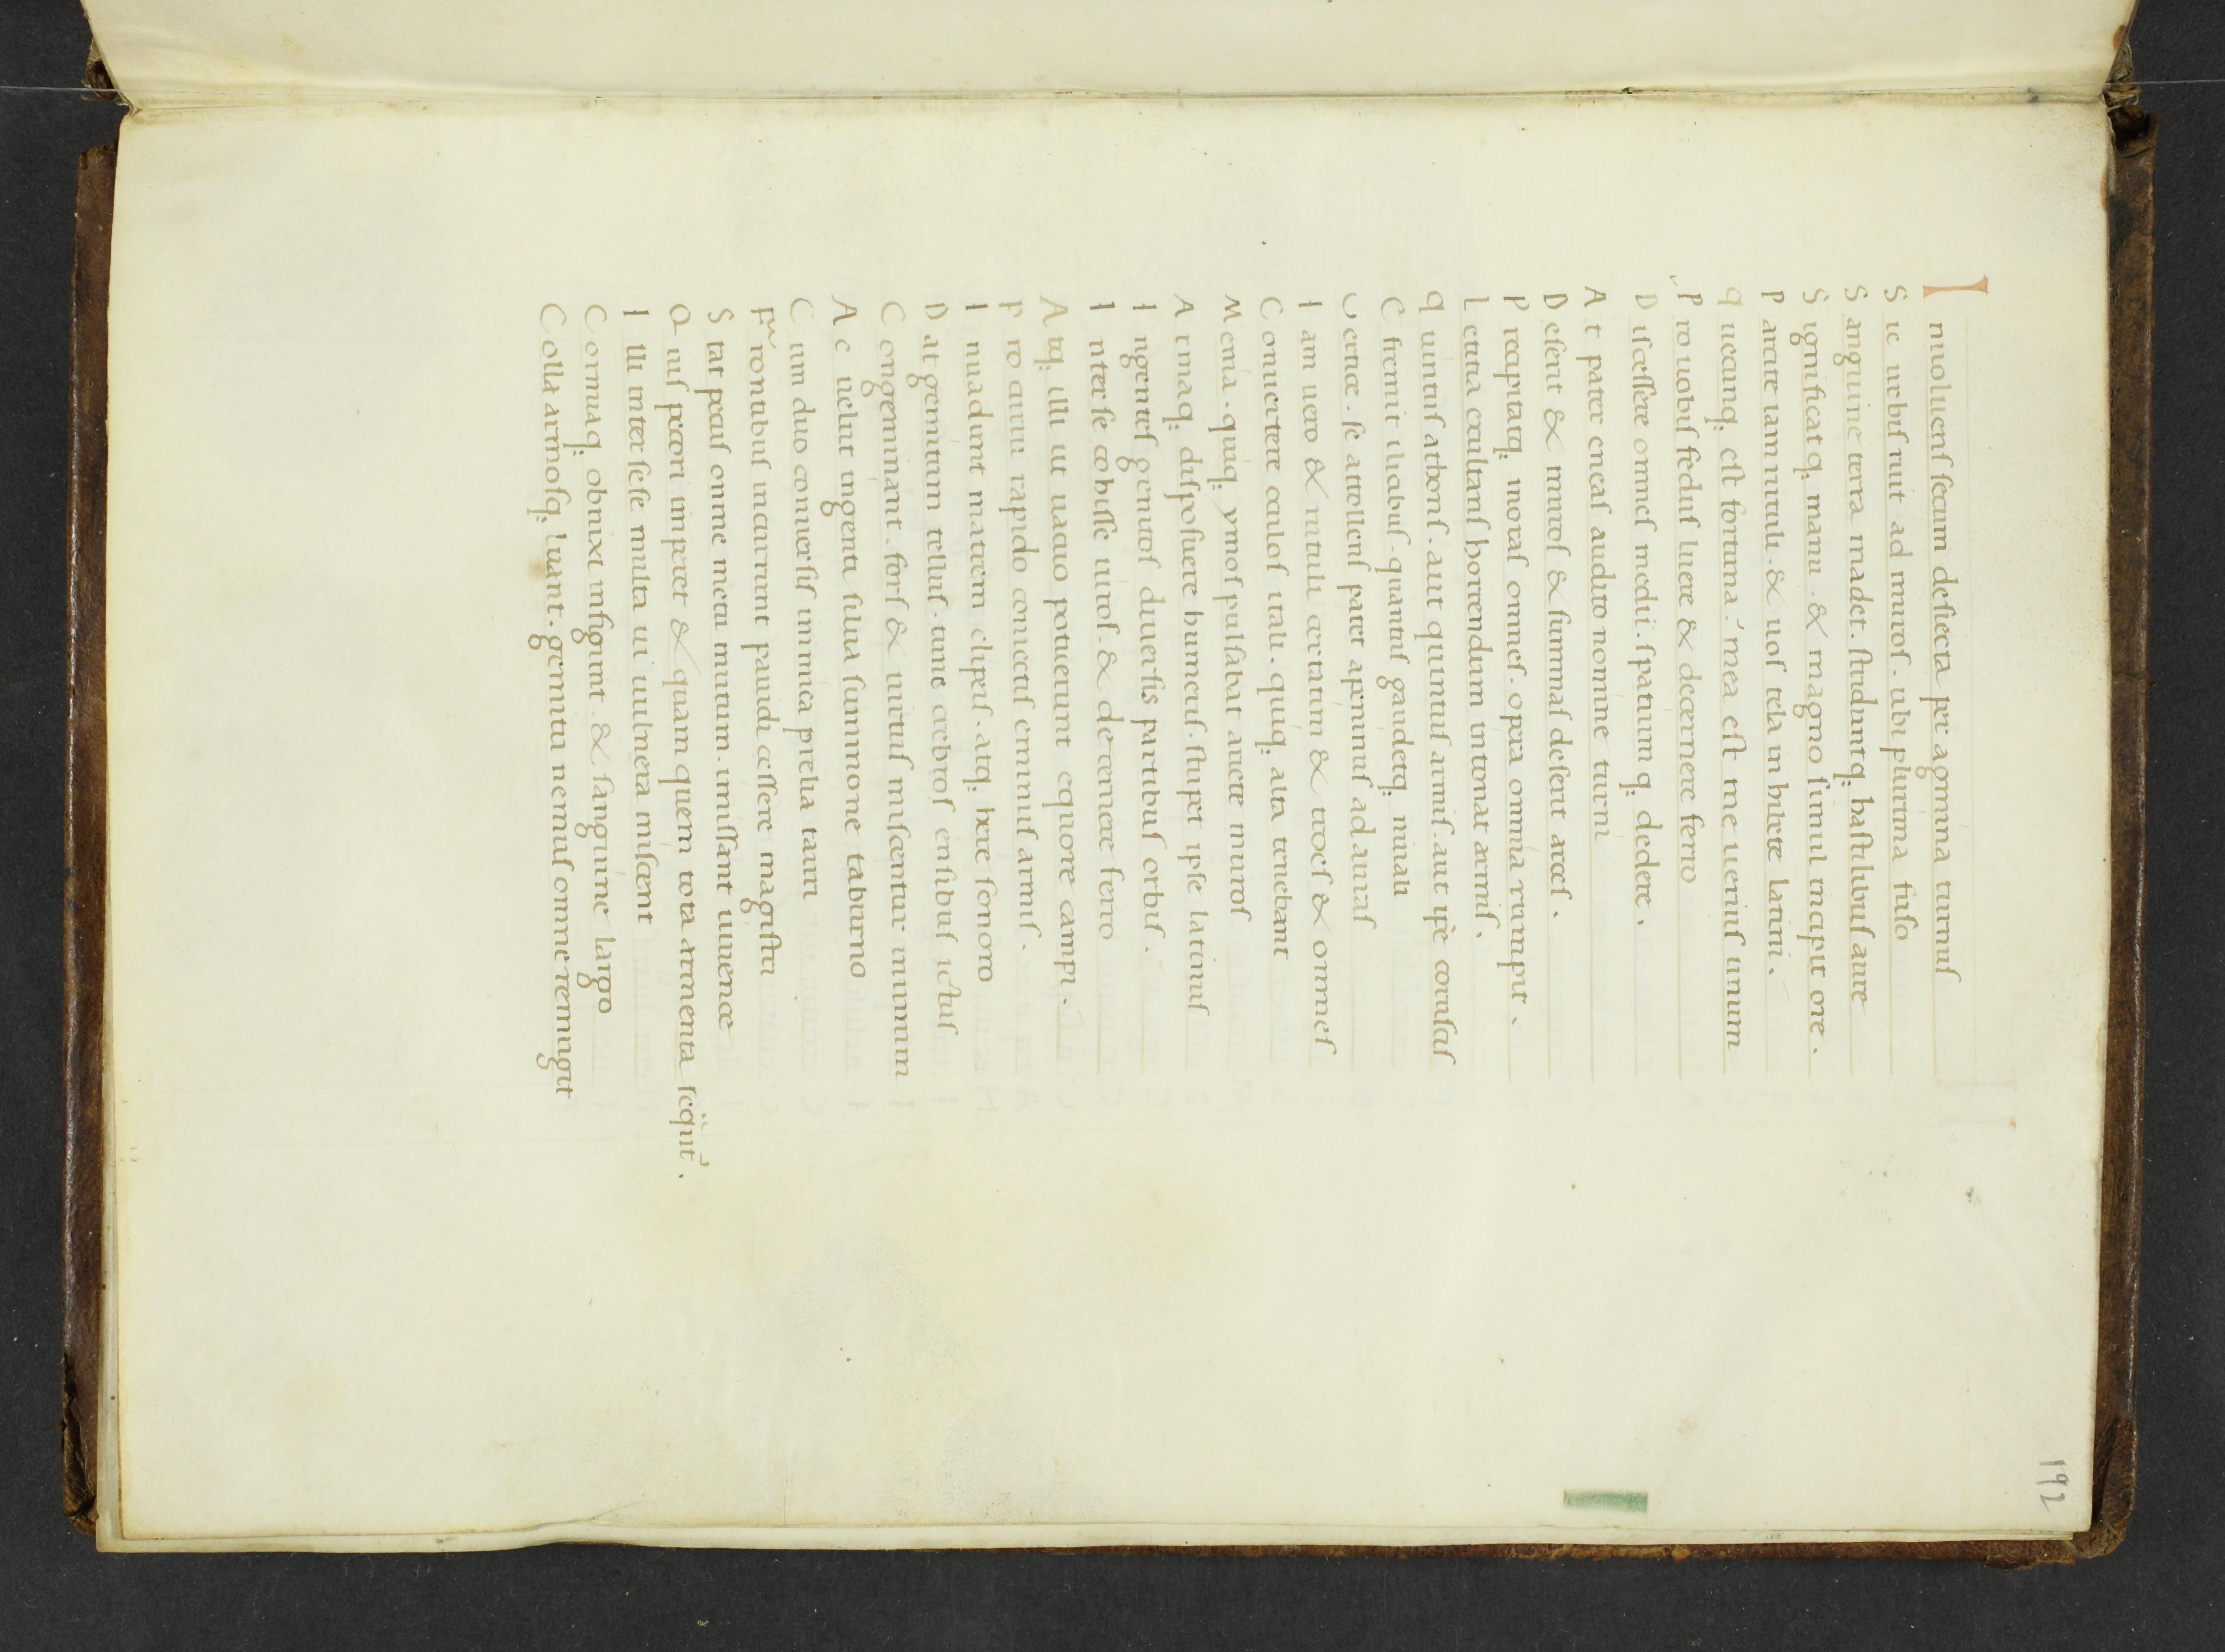 192
Inuoluens secum desiecta per agmina turnus
Sic urbis ruit ad muros. ubi plurima fuso
Sanguine terra madet. studuntq; hastilibus aure
Significatq; manu. & magno simul incipit ore.
Parcite iam rutuli. & uos tela inhibete latini.
quecunq; est fortuna. mea est me uerius unum
Pro uobis fedus luere & decernere ferro
Discessere omnes medii. spatiumq; dedere.
At pater eneas audito nomine turni
Deserit & muros & summas deserit arces.
Precipitatq; moras omnes. opera omnia rumpit.
Letitia exultans horrendum intonat armis.
quintus athons. aut quintus armis. aut ipse coruscis
C fremit ilicibus. quantus gaudetq; niuali
Vertice. se attollens pater apenninus ad auras
Iam uero & rutuli certatim & troes & omnes
Conuertere oculos itali. quiq; alta tenebant
Menia. quiq; ymos pulsabat ariete muros
Armaq; disposuere humeris. stupet ipse latinus
Ingentes genitos diuersis partibus orbis.
Inter se cohisse uiros. & decernere ferro
Atq; illi ut uacuo potuerunt equore campi.
Procursu rapido coniectis eminus armis.
Inuadunt matrem clipeis. atq; here sonoro
Dat gemitum tellus. tunc crebros ensibus ictus
Congeminant. fors & uirtus miscentur inunum
Ac uelut ingenti silua summone taburno
Cum duo conuersis inimica prelia tauri
Frontibus incurrunt pauidi cessere magistri
Stat pecus omne metu mutum. mussant iuuence
Quis pecori imperet & quam quem tota armenta sequnt.
Illi inter sese multa ui uulnera miscent
Cornuaq; obnixi infigunt & sanguine largo
Colla armosq; luant. gemitu nemus omne remugit